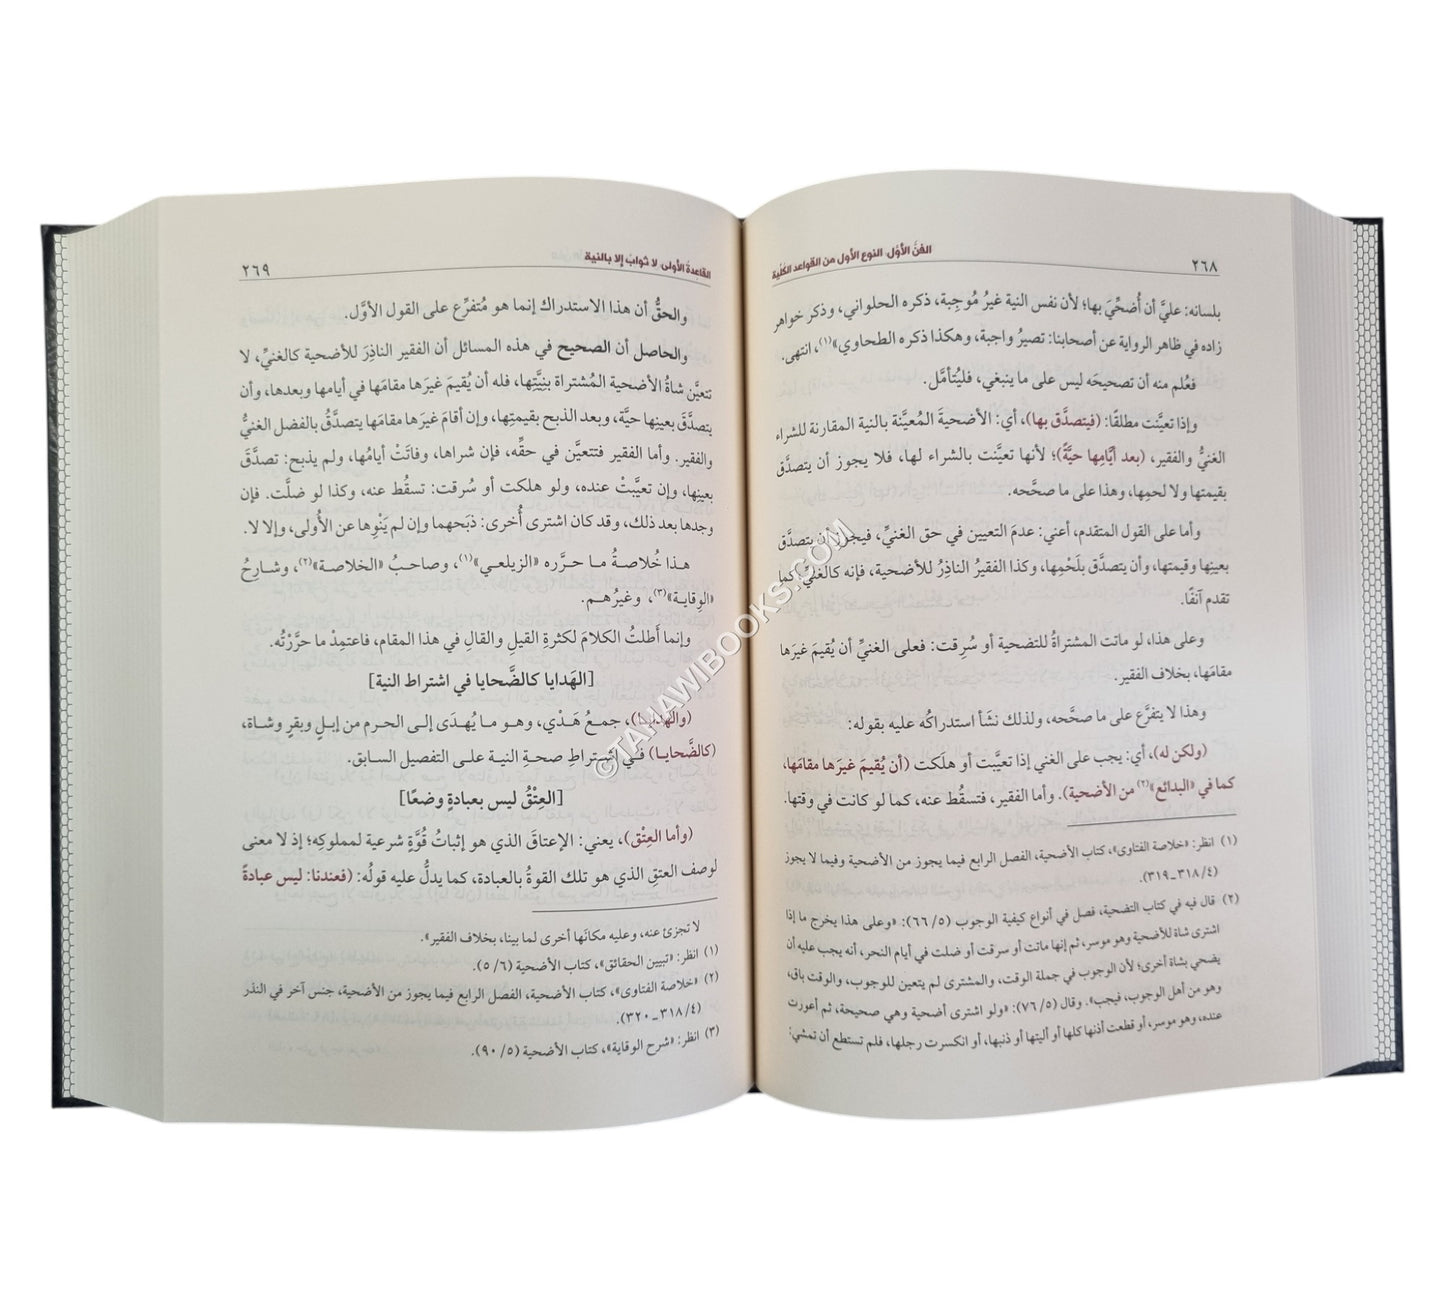 ٢٦٨
الفنّ الأوّل، النوع الأول من القواعد الكلّية
بلسانه: عليَّ أن أُضحِّيَ بها؛ لأن نفس النية غيرُ مُوجِبة، ذكره الحلواني، وذكر خواهر
زاده في ظاهر الرواية عن أصحابنا: تصيرُ واجبة، وهكذا ذكره الطحاوي»(١)، انتهى.
فعُلم منه أن تصحيحَه ليس على ما ينبغي، فليُتأمَّل.
وإذا تعيَّنت مطلقًا: (فيتصدَّق بها)، أي: الأضحيةَ المُعيَّنة بالنية المقارنة للشراء
الغنيُّ والفقير، (بعد أيَّامِها حيَّةً)؛ لأنها تعيَّنت بالشراء لها، فلا يجوز أن يتصدَّق
بقيمتها ولا لحمِها، وهذا على ما صحَّحه.
وأما على القول المتقدم، أعني: عدمَ التعيين في حق الغنيِّ، فيجوز أن يتصدَّق
بعينِها وقيمتها، وأن يتصدَّق بلَحْمِها، وكذا الفقيرُ الناذِرُ للأضحية، فإنه كالغنيِّ كما
تقدم آنفًا.
وعلى هذا، لو ماتت المشتراةُ للتضحية أو سُرِقت: فعلى الغنيِّ أن يُقيمَ غيرَها
مقامَها، بخلاف الفقير.
وهذا لا يتفرَّع على ما صحَّحه، ولذلك نشَأ استدراكُه عليه بقوله:
(ولكن له)، أي: يجب على الغني إذا تعيَّبت أو هلَكت (أن يُقيمَ غيرَها مقامَها،
كما في «البدائع»(٢) من الأضحية). وأما الفقير، فتسقُط عنه، كما لو كانت في وقتها.
(١) انظر: «خلاصة الفتاوى»، كتاب الأضحية، الفصل الرابع فيما يجوز من الأضحية وفيما لا يجوز
(٤/ ٣١٨ـ٣١٩).
(٢) قال فيه في كتاب التضحية، فصل في أنواع كيفية الوجوب (٥/ ٦٦): «وعلى هذا يخرج ما إذا
اشترى شاة للأضحية وهو موسر، ثم إنها ماتت أو سرقت أو ضلت في أيام النحر، أنه يجب عليه أن
يضحي بشاة أخرى؛ لأن الوجوب في جملة الوقت، والمشترى لم يتعين للوجوب، والوقت باق،
وهو من أهل الوجوب، فيجب». وقال (٥/ ٧٦): «ولو اشترى أضحية وهي صحيحة، ثم أعورت
عنده، وهو موسر، أو قطعت أذنها كلها أو أليتها أو ذنبها، أو انكسرت رجلها، فلم تستطع أن تمشي:
القاعدة الأولى، لا ثواب إلا بالنية
٢٦٩
والحقُّ أن هذا الاستدراك إنما هو مُتفرِّع على القول الأوَّل.
والحاصل أن الصحيح في هذه المسائل أن الفقير الناذِرَ للأضحية كالغنيِّ، لا
تتعيَّن شاةُ الأضحية المُشتراة بنِيَّتِها، فله أن يُقيمَ غيرَها مقامَها في أيامها وبعدها، وأن
يتصدَّقَ بعينِها حيَّة، وبعد الذبح بقيمتِها، وإن أقامَ غيرَها مقامَها يتصدَّقُ بالفضل الغنيُّ
والفقير. وأما الفقير فتتعيَّن في حقِّه، فإن شراها، وفاتَتْ أيامُها، ولم يذبح: تصدَّقَ
بعينِها، وإن تعيَّبتْ عنده، ولو هلكت أو سُرقت: تسقُط عنه، وكذا لو ضلَّت. فإن
وجدها بعد ذلك، وقد كان اشترى أُخرى: ذبَحهما وإن لم يَنْوِها عن الأُولى، وإلا لا.
هذا خُلاصةُ ما حرَّره «الزيلعي»(١)، وصاحبُ «الخلاصة»(٢)، وشارِحُ
«الوِقاية»(٣)، وغيرُهم.
وإنما أَطلتُ الكلامَ لكثرةِ القيلِ والقالِ في هذا المقام، فاعتمِدْ ما حرَّرْتُه.
[الهَدايا كالضَّحايا في اشتراط النية]
(والهدايا)، جمعُ هَدْي، وهو ما يُهدَى إلى الحرم من إبلٍ وبقرٍ وشاة،
(كالضَّحايا) في اشتراطِ صحةِ النية على التفصيل السابق.
[العِتْقُ ليس بعبادةٍ وضعًا]
(وأما العِتْق)، يعني: الإعتاقَ الذي هو إثباتُ قُوَّةٍ شرعية لمملوكِه؛ إذ لا معنى
لوصف العتقِ الذي هو تلك القوةُ بالعبادة، كما يدلُّ عليه قولُه: (فعندنا: ليس عبادةً
لا تجزئ عنه، وعليه مكانَها أخرى لما بينا، بخلاف الفقير».
(١) انظر: «تبيين الحقائق»، كتاب الأضحية (٦/ ٥).
(٢) «خلاصة الفتاوى»، كتاب الأضحية، الفصل الرابع فيما يجوز من الأضحية، جنس آخر في النذر
(٤/ ٣١٨ـ٣٢٠).
(٣) انظر: «شرح الوقاية»، كتاب الأضحية (٥/ ٩٠).
©TAHAWIBOOKS.COM